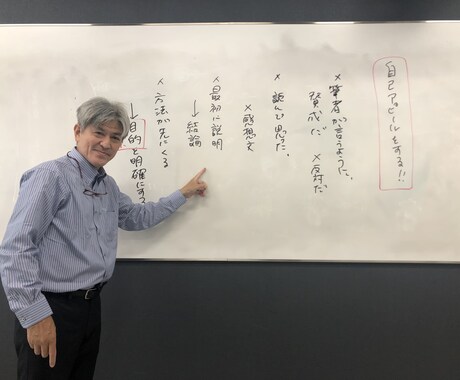 自己アピールをする!!
×筆者が言うように、
賛成だ ×反対だ
×読んで思った。
×感想文
×最初に説明
→結論
×方法が先にくる
→目的を明確にする